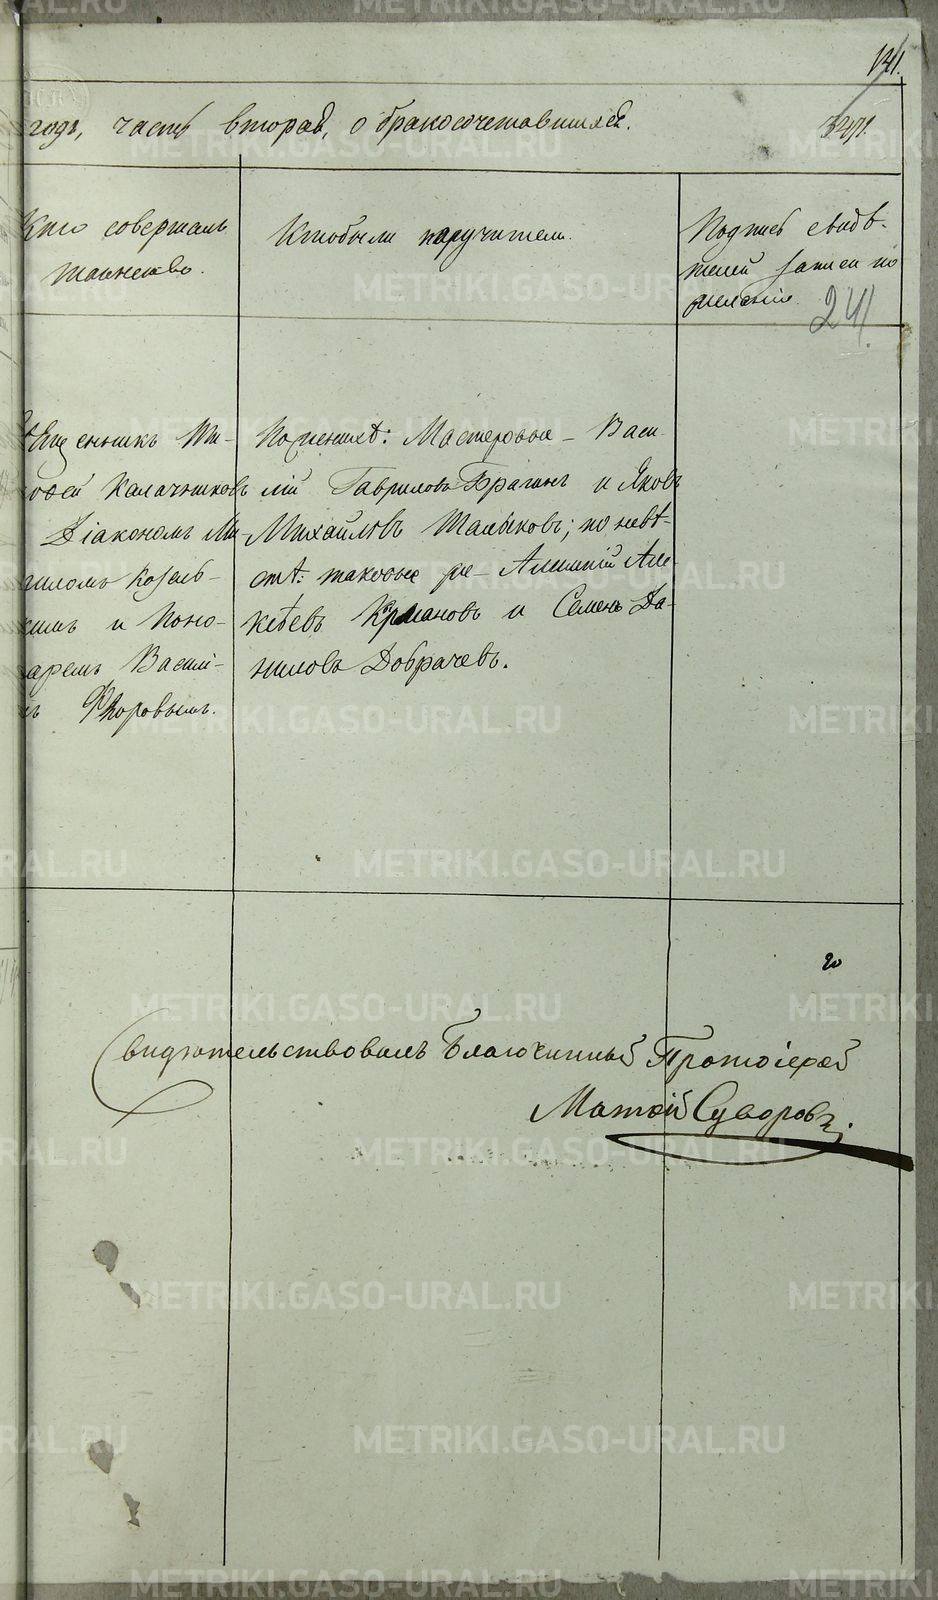 141.
годъ, часть вторая, о бракосочетавшихся.
Кто совершалъ
таинство.
Кто были поручители.
Подпись свидѣ-
телей записи по
желанію
241.
Священникъ Ти-
мофей Калачниковъ
Діакономъ Ми-
хаиломъ Козель-
скимъ и Поно-
маремъ Васи-
Флоровымъ.
По женихѣ: Мастеровые – Васи-
лій Гавриловъ Брагинъ и Яковъ
Михайловъ Талыковъ; по невѣ-
стѣ: таковые же –
и Семенъ Да-
ниловъ Добрачевъ.
Свидѣтельствовалъ Благочинный Протоіерей
Матѳій Суворовъ.
METRIKI.GASO-URAL.RU